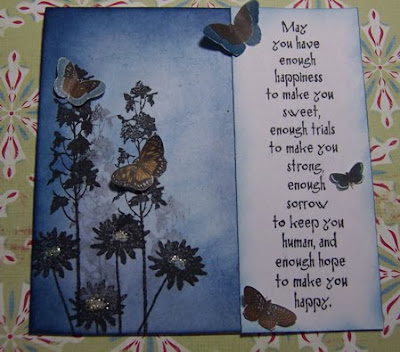 May
you have
enough
happiness
to make you
sweet,
enough trials
to make you
strong,
enough
sorrow
to keep you
human, and
enough hope
to make you
happy.